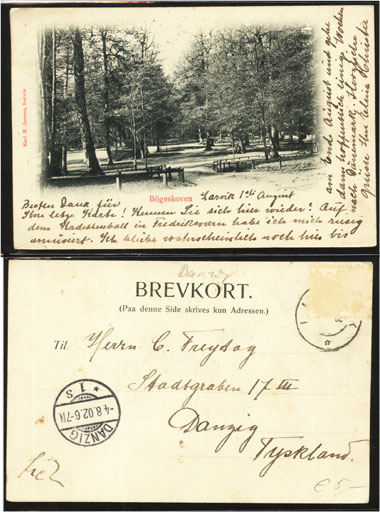 Karl H. Jensen, Laurvik
Bögeskoven
Larvik 1ste August
Besten Dank für
Ihre letzte Karte! Kennen Sie sich hier wieder? Auf
dem Kadettenball in Fredriksværn habe ich mich riesig
amüsiert. Ich bleibe wahrscheinlich noch hier bis
am Ende August und gehe
dann hoffentlich einige Wochen
nach Dänemark. Herzliche
Grüsse von
Danzig
BREVKORT.
(Paa denne Side skrives kun Adressen.)
Til
Herrn C. Freytag
Stadtgraben 17 III
Danzig
Tyskland.
DANZIG
-4.8.02.6-7N.
* 1 S
€ 5-